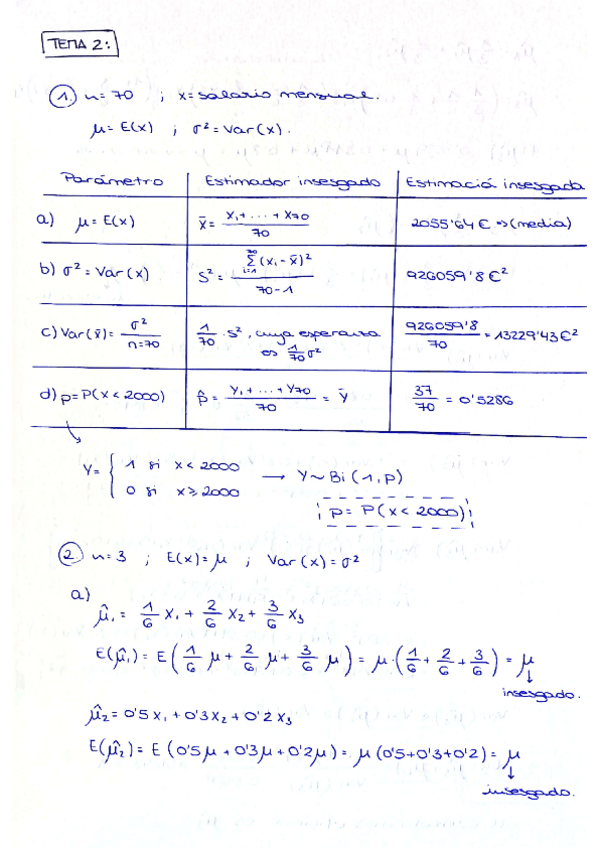 TEMA 2:
1. n=70 ; x=salario mensual.
μ=E(x) ; σ²=Var(x).
Parámetro | Estimador insesgado | Estimació insesgada
a) μ=E(x) | x̄ = (x₁+...+x₇₀)/70 | 2055'64 € => (media)
b) σ²=Var(x) | S² = Σᵢ₌₁⁷⁰(xᵢ-x̄)²/(70-1) | 926059'8 €²
c) Var(x̄)= σ²/n=70 | 1/70 · S², cuya esperanza es 1/70 σ² | 926059'8/70 = 13229'43 €²
d) p=P(x<2000) | p̂ = (Y₁+...+Y₇₀)/70 = Ȳ | 37/70 = 0'5286
Y= { 1 si x<2000
0 si x≥2000 → Y~Bi(1,p)
p=P(x<2000)
2. n=3 ; E(x)=μ ; Var(x)=σ²
a)
μ̂₁ = 1/6 x₁ + 2/6 x₂ + 3/6 x₃
E(μ̂₁) = E(1/6 μ + 2/6 μ + 3/6 μ) = μ·(1/6 + 2/6 + 3/6) = μ
↓
insesgado.
μ̂₂ = 0'5x₁ + 0'3x₂ + 0'2x₃
E(μ̂₂) = E(0'5μ + 0'3μ + 0'2μ) = μ(0'5+0'3+0'2) = μ
↓
insesgado.